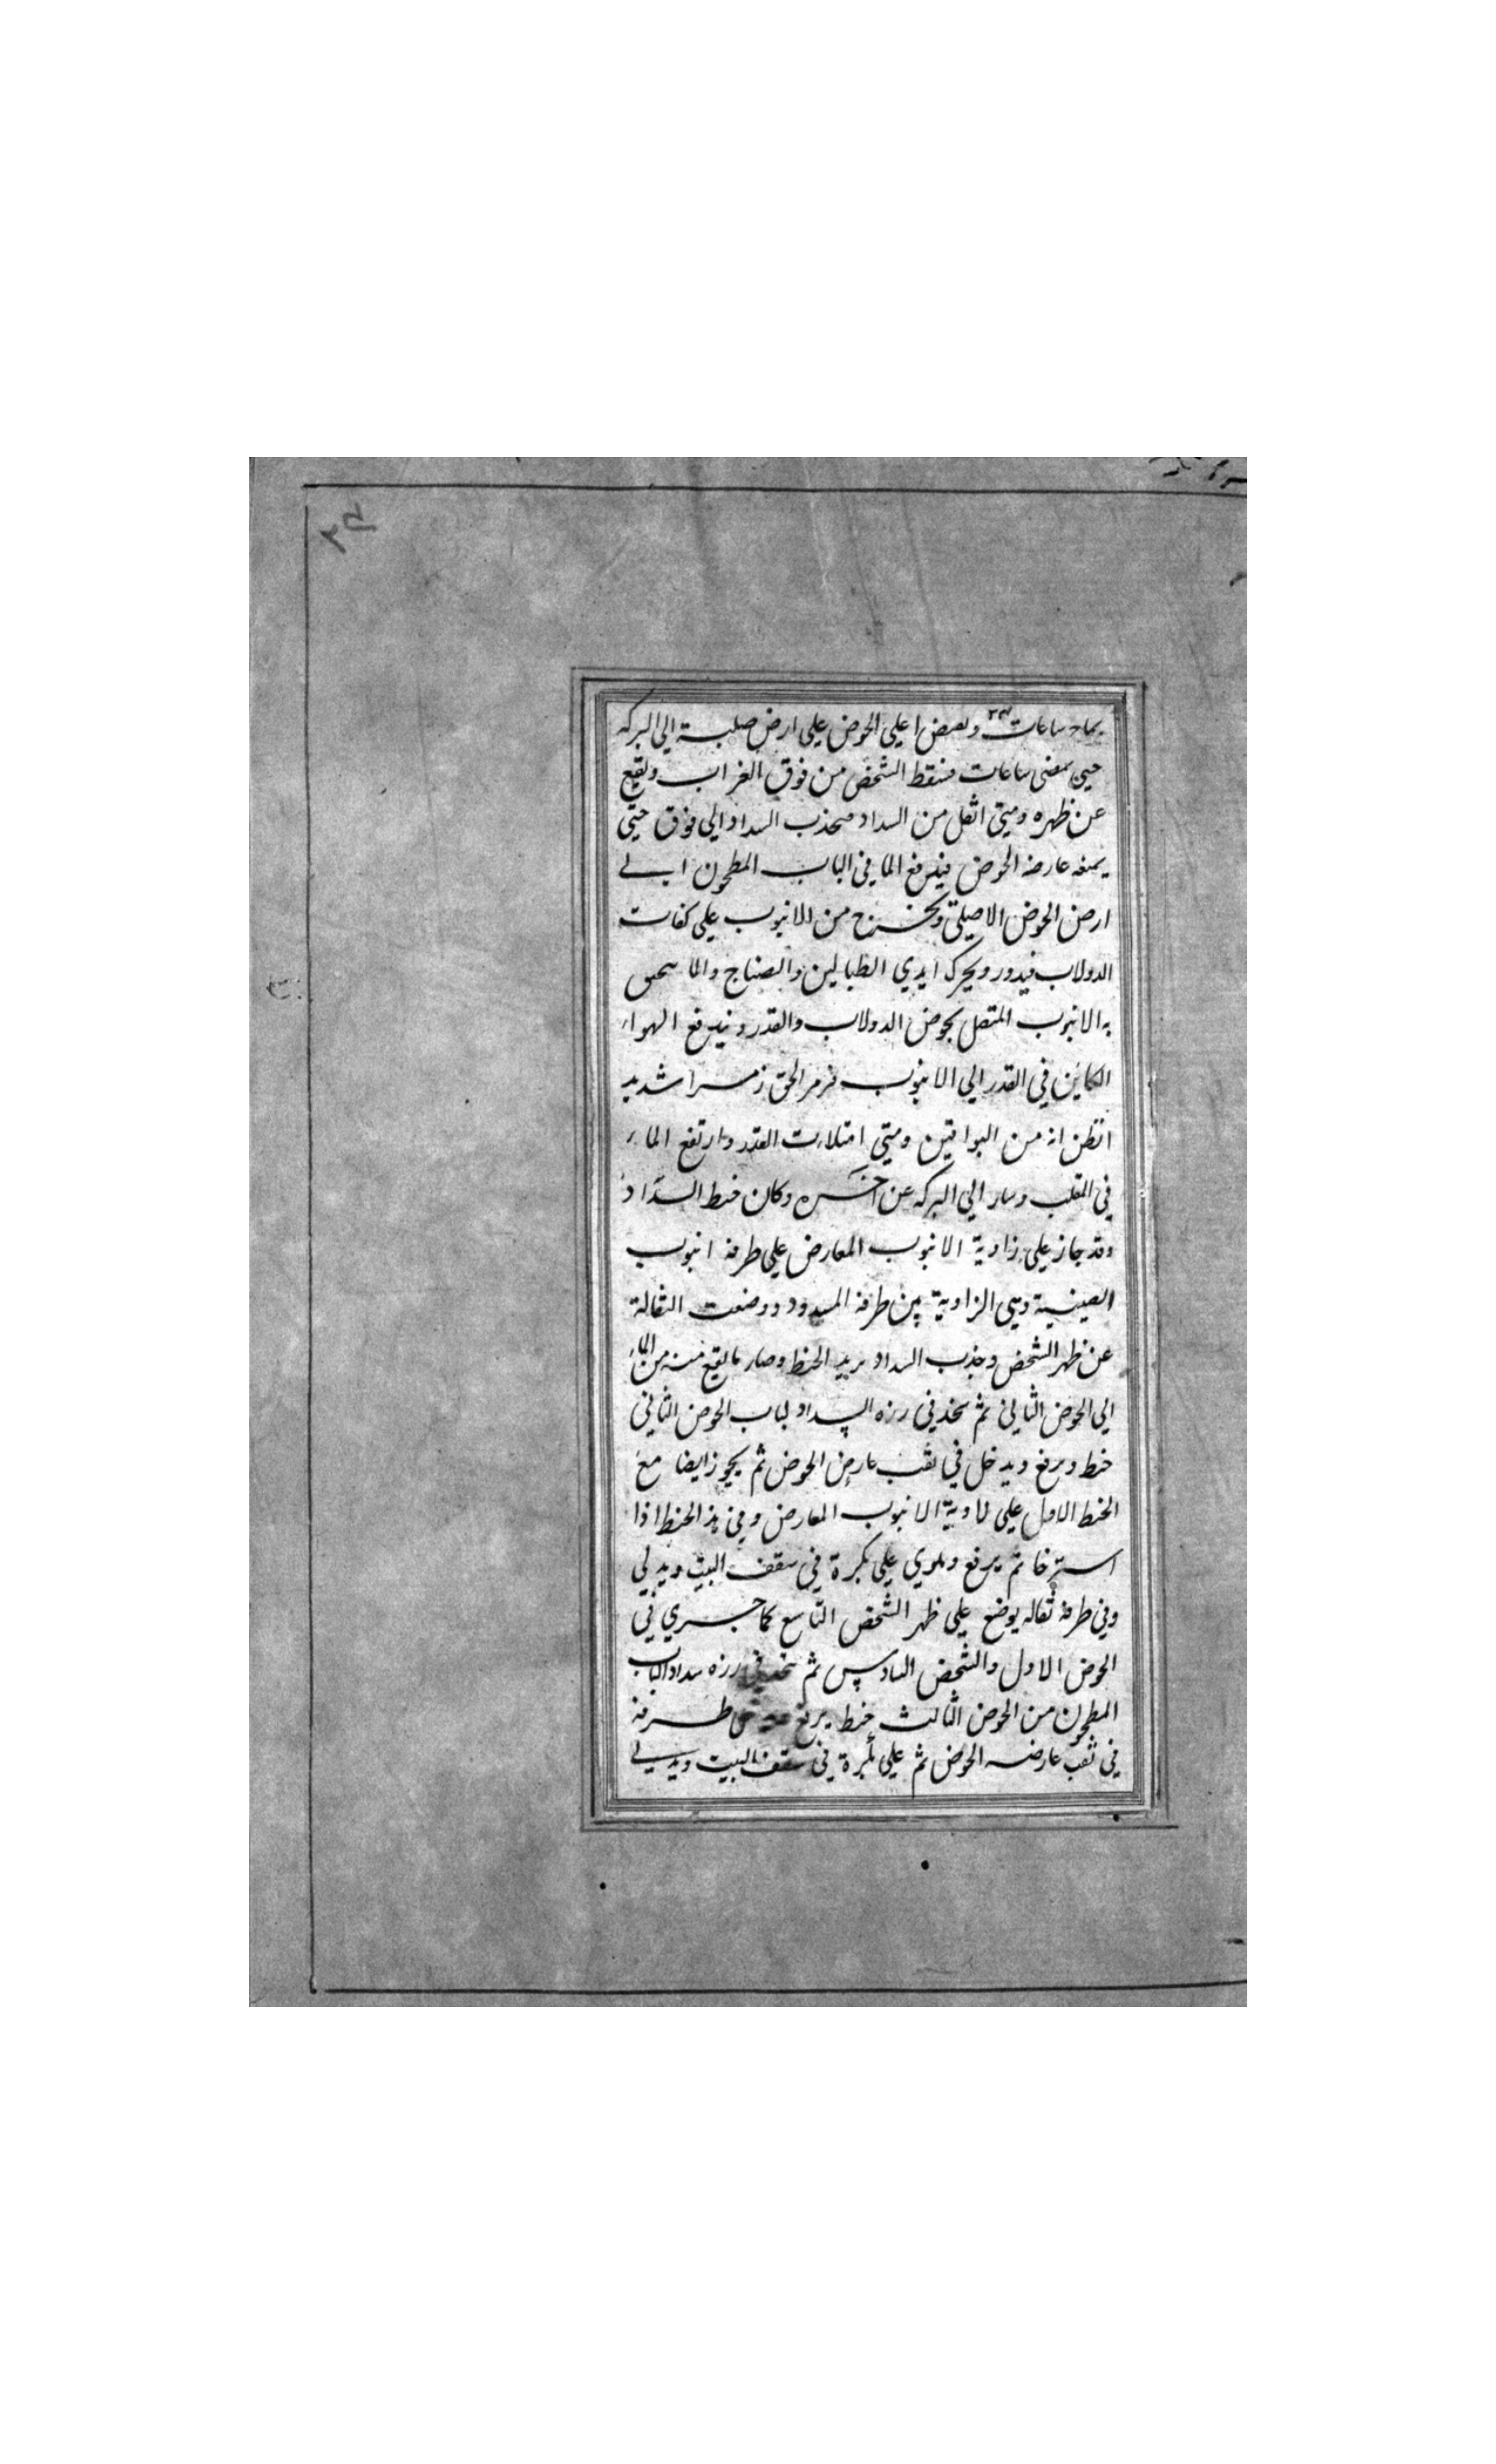 ساعات وبعض اعلي الحوض علي ارض صلبة الي البركه
حتي بمضي ساعات فسقط الشخص من فوق الغراب ويقع
عن ظهره ومتي اثقل من السداد فتجذب السداد الي فوق حتي
يمنعه عارضه الحوض فيندفع الما في الباب المطحون الي
ارض الحوض الاصلي ويخرج من الانبوب علي كفات
الدولاب فيدور ويحرك ايدي الطبالين والصناج والما
به الانبوب المتصل بحوض الدولاب والقدر ويندفع الهواء
الكاين في القدر الي الانبوب فزمر الحق زمرا شديد
اتظن انه من البواقين ومتي امتلات القدر وارتفع الماء
في المقلب وسار الي البركه عن اخره وكان خيط السداد
وقد جاز علي زاوية الانبوب المعارض علي طرفه انبوب
الصينية وهي الزاوية من طرفه المسدود ووضعت الثقالة
عن ظهر الشخص وجذب السداد بريد الخيط وصار ما يقع منه من الماء
الي الحوض الثاني ثم يتخذ في رزه السداد لباب الحوض الثاني
خيط ويرفع ويدخل في ثقب عارض الحوض ثم يجوز ايضا مع
الخيط الاول علي زاوية الانبوب المعارض وفي هذا الخيط اذا
استرخا ثم يرفع ويلوي علي بكرة في سقف البيت ويدلي
وفي طرفه ثقاله يوضع علي ظهر الشخص التاسع كما جري في
الحوض الاول والشخص السادس ثم يتخذ في رزه سداد الباب
المطحون من الحوض الثالث خيط يرفع طرفه
في ثقب عارضه الحوض ثم علي بكرة في سقف البيت ويدلي